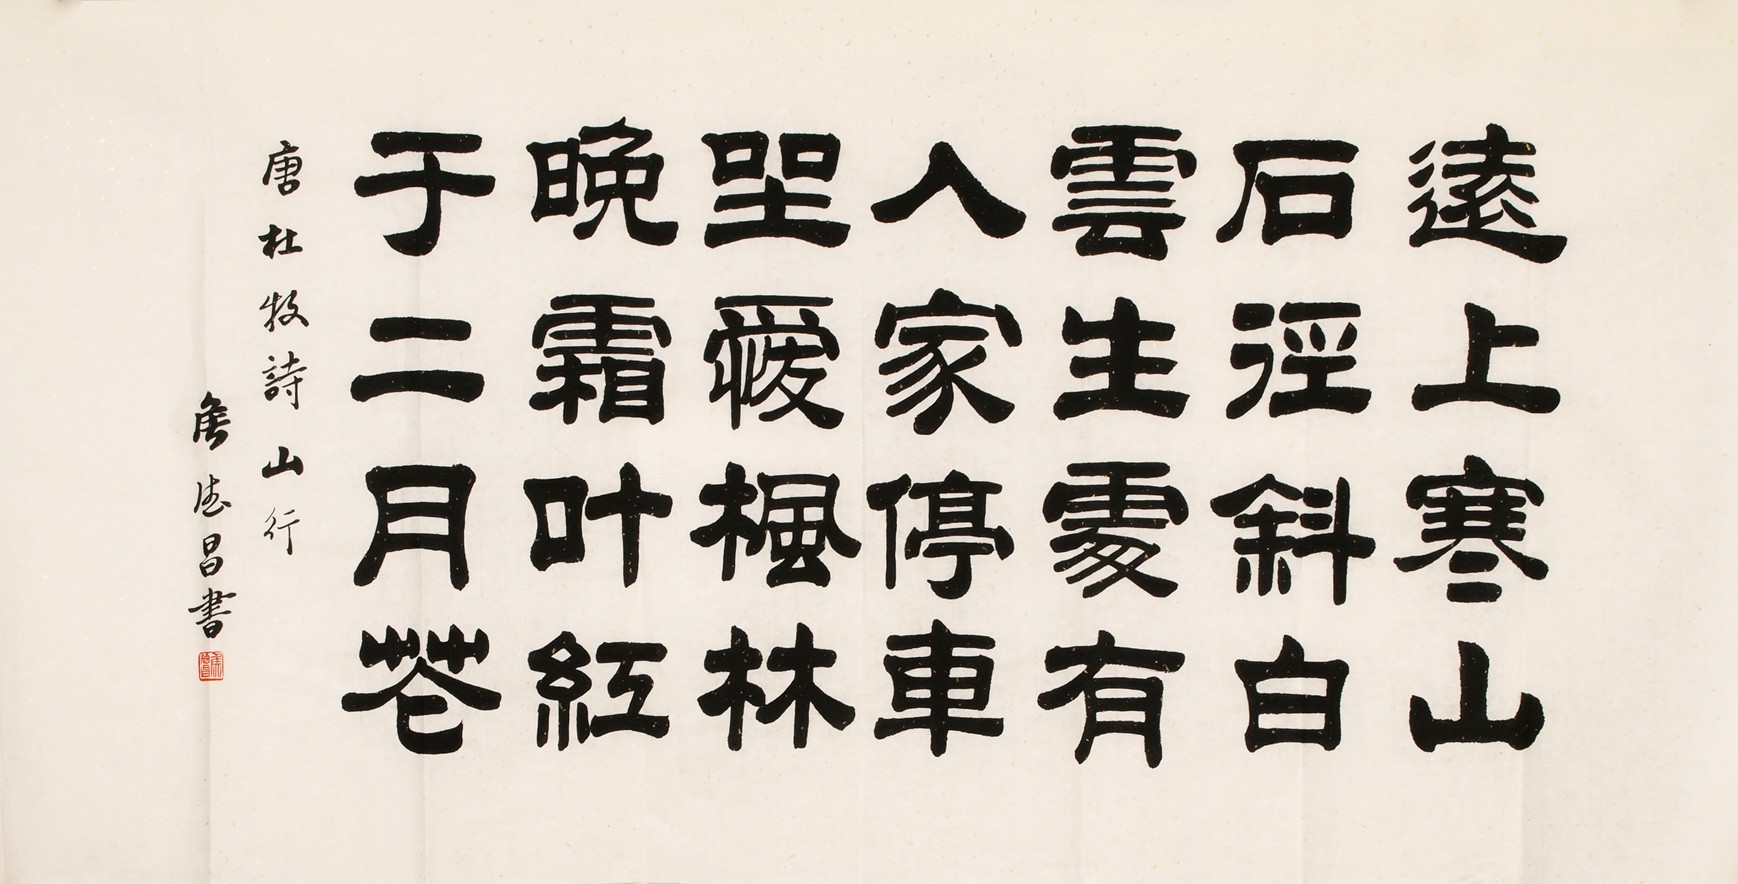 遠上寒山
石徑斜白
雲生處有
人家停車
坐愛楓林
晚霜叶紅
于二月花
唐杜牧詩山行
侯德昌書